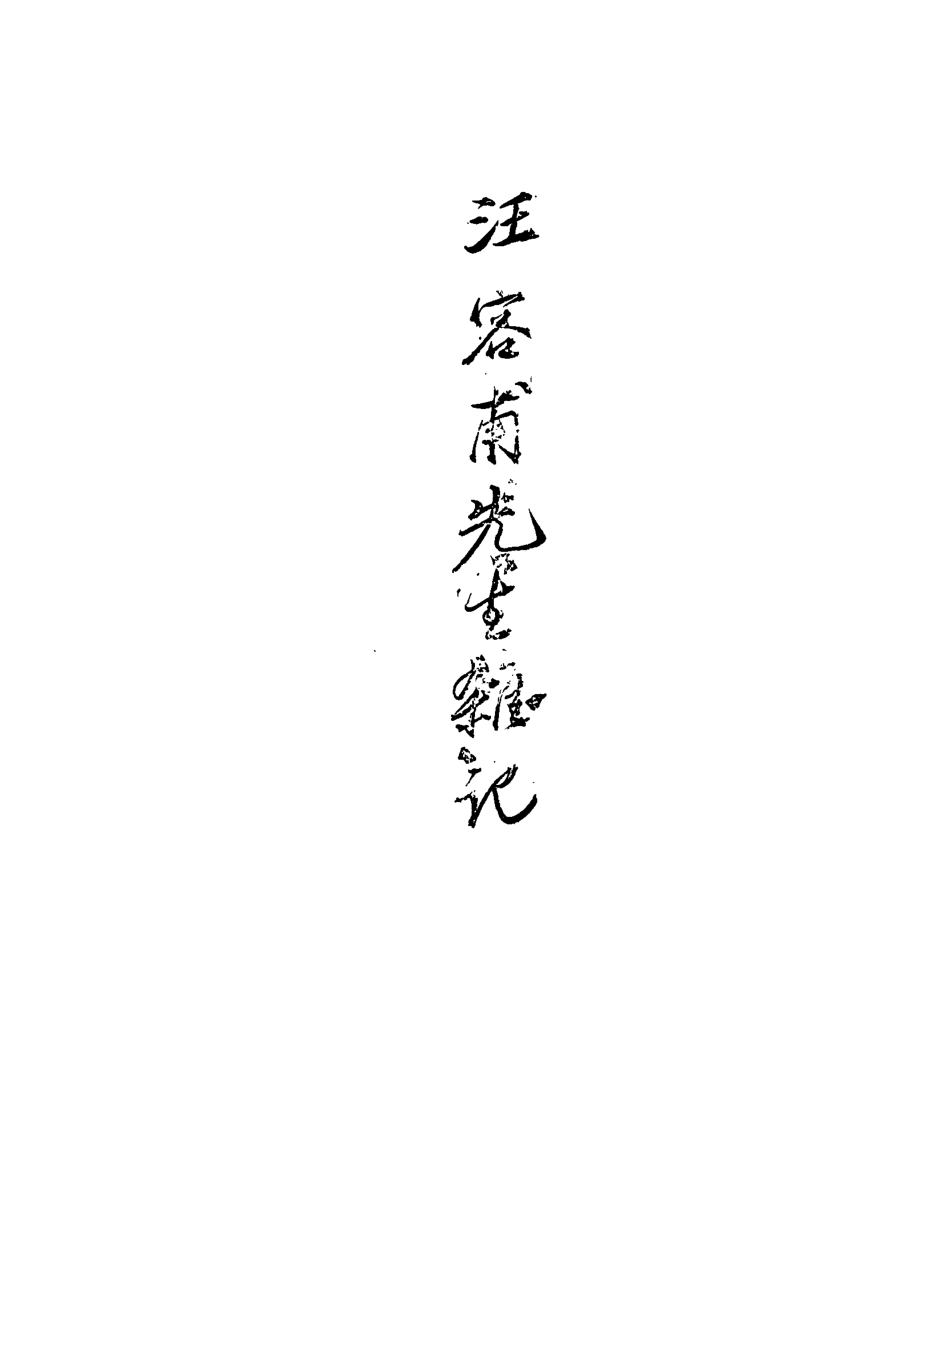 汪容甫先生雜記